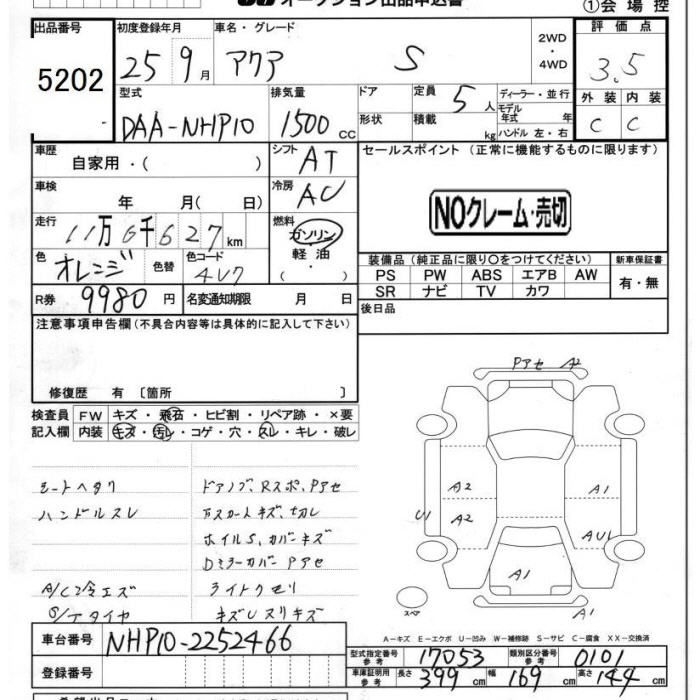 オークション出品申込書
①会場控
出品番号
5202
初度登録年月
25 9月
車名・グレード
アクア S
2WD
・
4WD
評価点
3.5
外装 内装
C C
型式
DAA-NHP10
排気量
1500 CC
ドア
形状
定員 5人
積載 kg
ディーラー・並行
モデル年式 年
ハンドル 左・右
車歴
自家用・( )
シフト AT
車検
年 月( 日)
冷房 AC
走行
11万6千627km
燃料
ガソリン
・
軽油
・
色 オレンジ
色替
色コード 4V7
R券 9980円
名変通知期限 月 日
セールスポイント(正常に機能するものに限ります)
NOクレーム・売切
装備品(純正品に限り○をつけてください)
新車保証書
PS PW ABS エアB AW
SR ナビ TV カワ
有・無
後日品
注意事項申告欄(不具合内容等は具体的に記入して下さい)
修復歴 有〔箇所 〕
検査員
記入欄
FW キズ・飛石・ヒビ割・リペア跡・×要
内装 キズ・汚レ・コゲ・穴・スレ・キレ・破レ
シートヘタリ
ハンドルスレ
A/C冷エズ
S/Tタイヤ
ドアノブ、Rスポ、Pアセ
下スカートキズ、切レ
ホイルS、カバーキズ
Dミラーカバー Pアセ
ライトクモリ
キズUスリキズ
Pアセ A2
A2
A2
U1
A1
AU1
A1
A1
スペア
A-キズ E-エクボ U-凹み W-補修跡 S-サビ C-腐食 XX-交換済
車台番号 NHP10-2252466
登録番号
型式指定番号参考 17053
類別区分番号参考 0101
車庫証明用参考 長さ 399 幅 169 高さ 144 cm